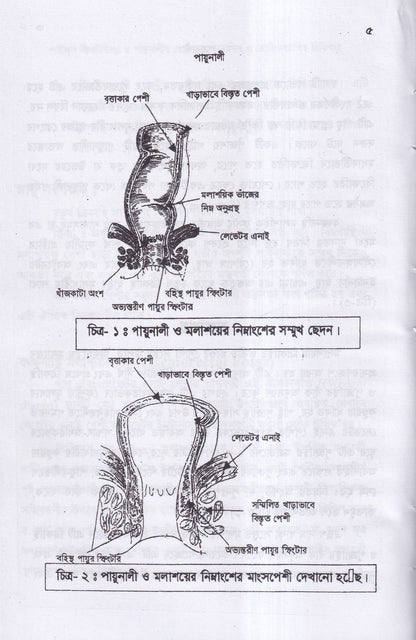 ৫
পায়ুনালী
বৃত্তাকার পেশী
খাড়াভাবে বিস্তৃত পেশী
মলাশয়িক ভাঁজের
নিম্ন অনুপ্রস্থ
লেভেটর এনাই
খাঁজকাটা অংশ
বহিস্থ পায়ুর স্ফিংটার
অভ্যন্তরীণ পায়ুর স্ফিংটার
চিত্র- ১ ঃ পায়ুনালী ও মলাশয়ের নিম্নাংশের সম্মুখ ছেদন।
বৃত্তাকার পেশী
খাড়াভাবে বিস্তৃত পেশী
লেভেটর এনাই
সম্মিলিত খাড়াভাবে
বিস্তৃত পেশী
অভ্যন্তরীণ পায়ুর স্ফিংটার
বহিস্থ পায়ুর স্ফিংটার
চিত্র- ২ ঃ পায়ুনালী ও মলাশয়ের নিম্নাংশের মাংসপেশী দেখানো